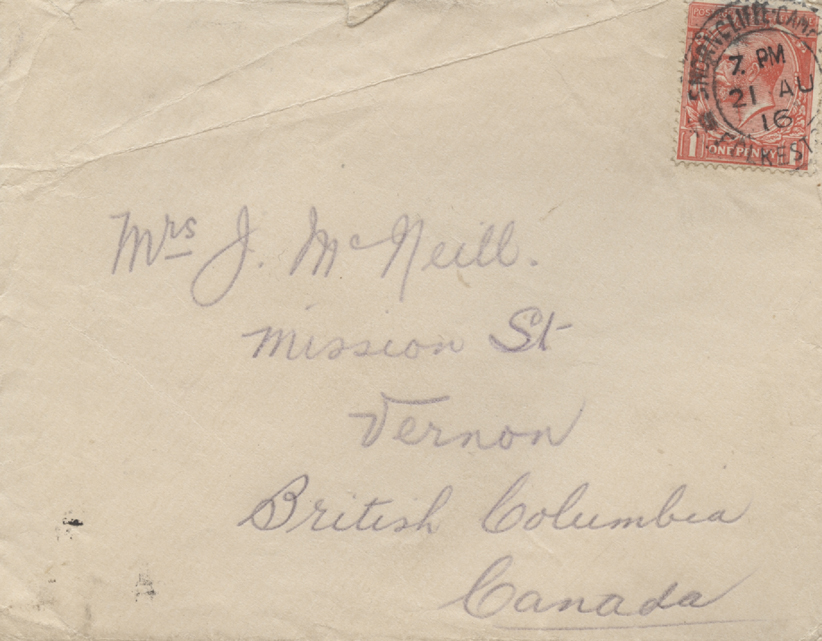 SHORNCLIFFE CAMP
7. PM
21 AU
16
FOLKEST
1 ONE PENNY
Mrs J. McNeill.
Mission St
Vernon
British Columbia
Canada